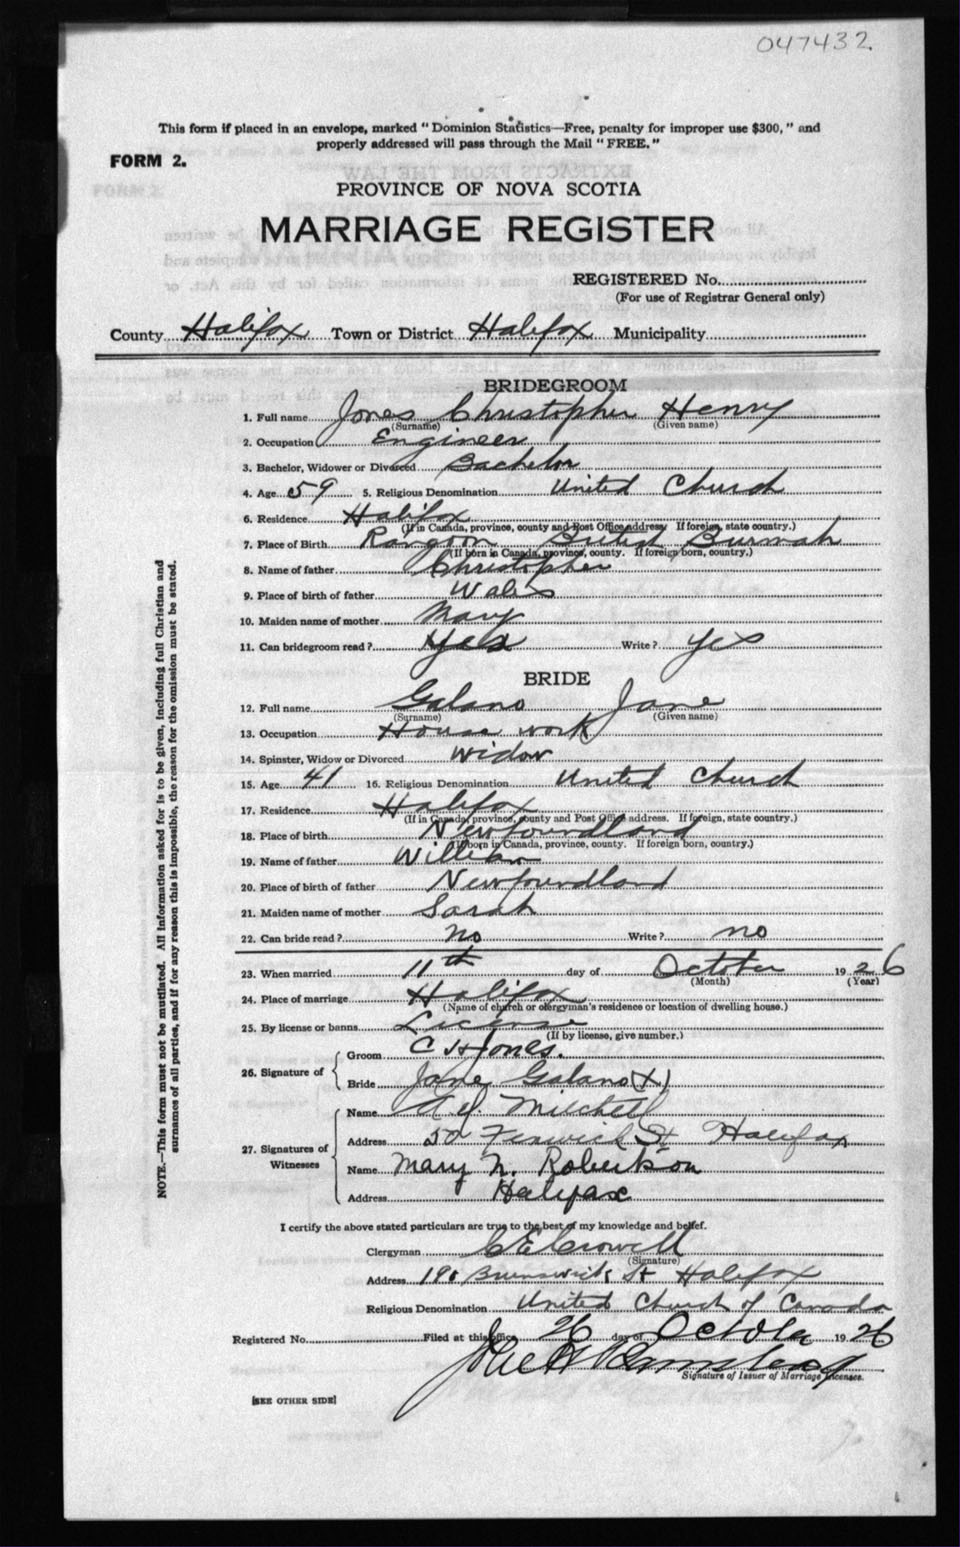 047432
This form if placed in an envelope, marked "Dominion Statistics—Free, penalty for improper use $300," and
properly addressed will pass through the Mail "FREE."
FORM 2.
PROVINCE OF NOVA SCOTIA
MARRIAGE REGISTER
REGISTERED No.
(For use of Registrar General only)
County Halifax Town or District Halifax Municipality
BRIDEGROOM
1. Full name Jones Christopher Henry
(Surname) (Given name)
2. Occupation Engineer
3. Bachelor, Widower or Divorced Bachelor
4. Age 59 5. Religious Denomination United Church
6. Residence Halifax
(If in Canada, province, county and Post Office address. If foreign, state country.)
7. Place of Birth Rangoon British Burmah
(If born in Canada, province, county. If foreign born, country.)
8. Name of father Christopher
9. Place of birth of father Wales
10. Maiden name of mother Mary
11. Can bridegroom read? Yes Write? Yes
BRIDE
12. Full name Galano Jane
(Surname) (Given name)
13. Occupation House work
14. Spinster, Widow or Divorced Widow
15. Age 41 16. Religious Denomination United Church
17. Residence Halifax
(If in Canada, province, county and Post Office address. If foreign, state country.)
18. Place of birth Newfoundland
(If born in Canada, province, county. If foreign born, country.)
19. Name of father William
20. Place of birth of father Newfoundland
21. Maiden name of mother Sarah
22. Can bride read? no Write? no
23. When married 11th day of October 1926
(Month) (Year)
24. Place of marriage Halifax
(Name of church or clergyman's residence or location of dwelling house.)
25. By license or banns License
(If by license, give number.)
26. Signature of Groom C H Jones.
Bride Jane Galano (X)
27. Signatures of Witnesses Name A. J. Mitchell
Address 52 Fenwick St Halifax
Name Mary N. Robertson
Address Halifax
I certify the above stated particulars are true to the best of my knowledge and belief.
Clergyman C E Crowell
(Signature)
Address 198 Brunswick St Halifax
Religious Denomination United Church of Canada
Registered No. Filed at this office 26 day of October 1926
Signature of Issuer of Marriage Licenses.
[SEE OTHER SIDE]
NOTE.—This form must not be mutilated. All information asked for is to be given, including full Christian and
surnames of all parties, and if for any reason this is impossible, the reason for the omission must be stated.